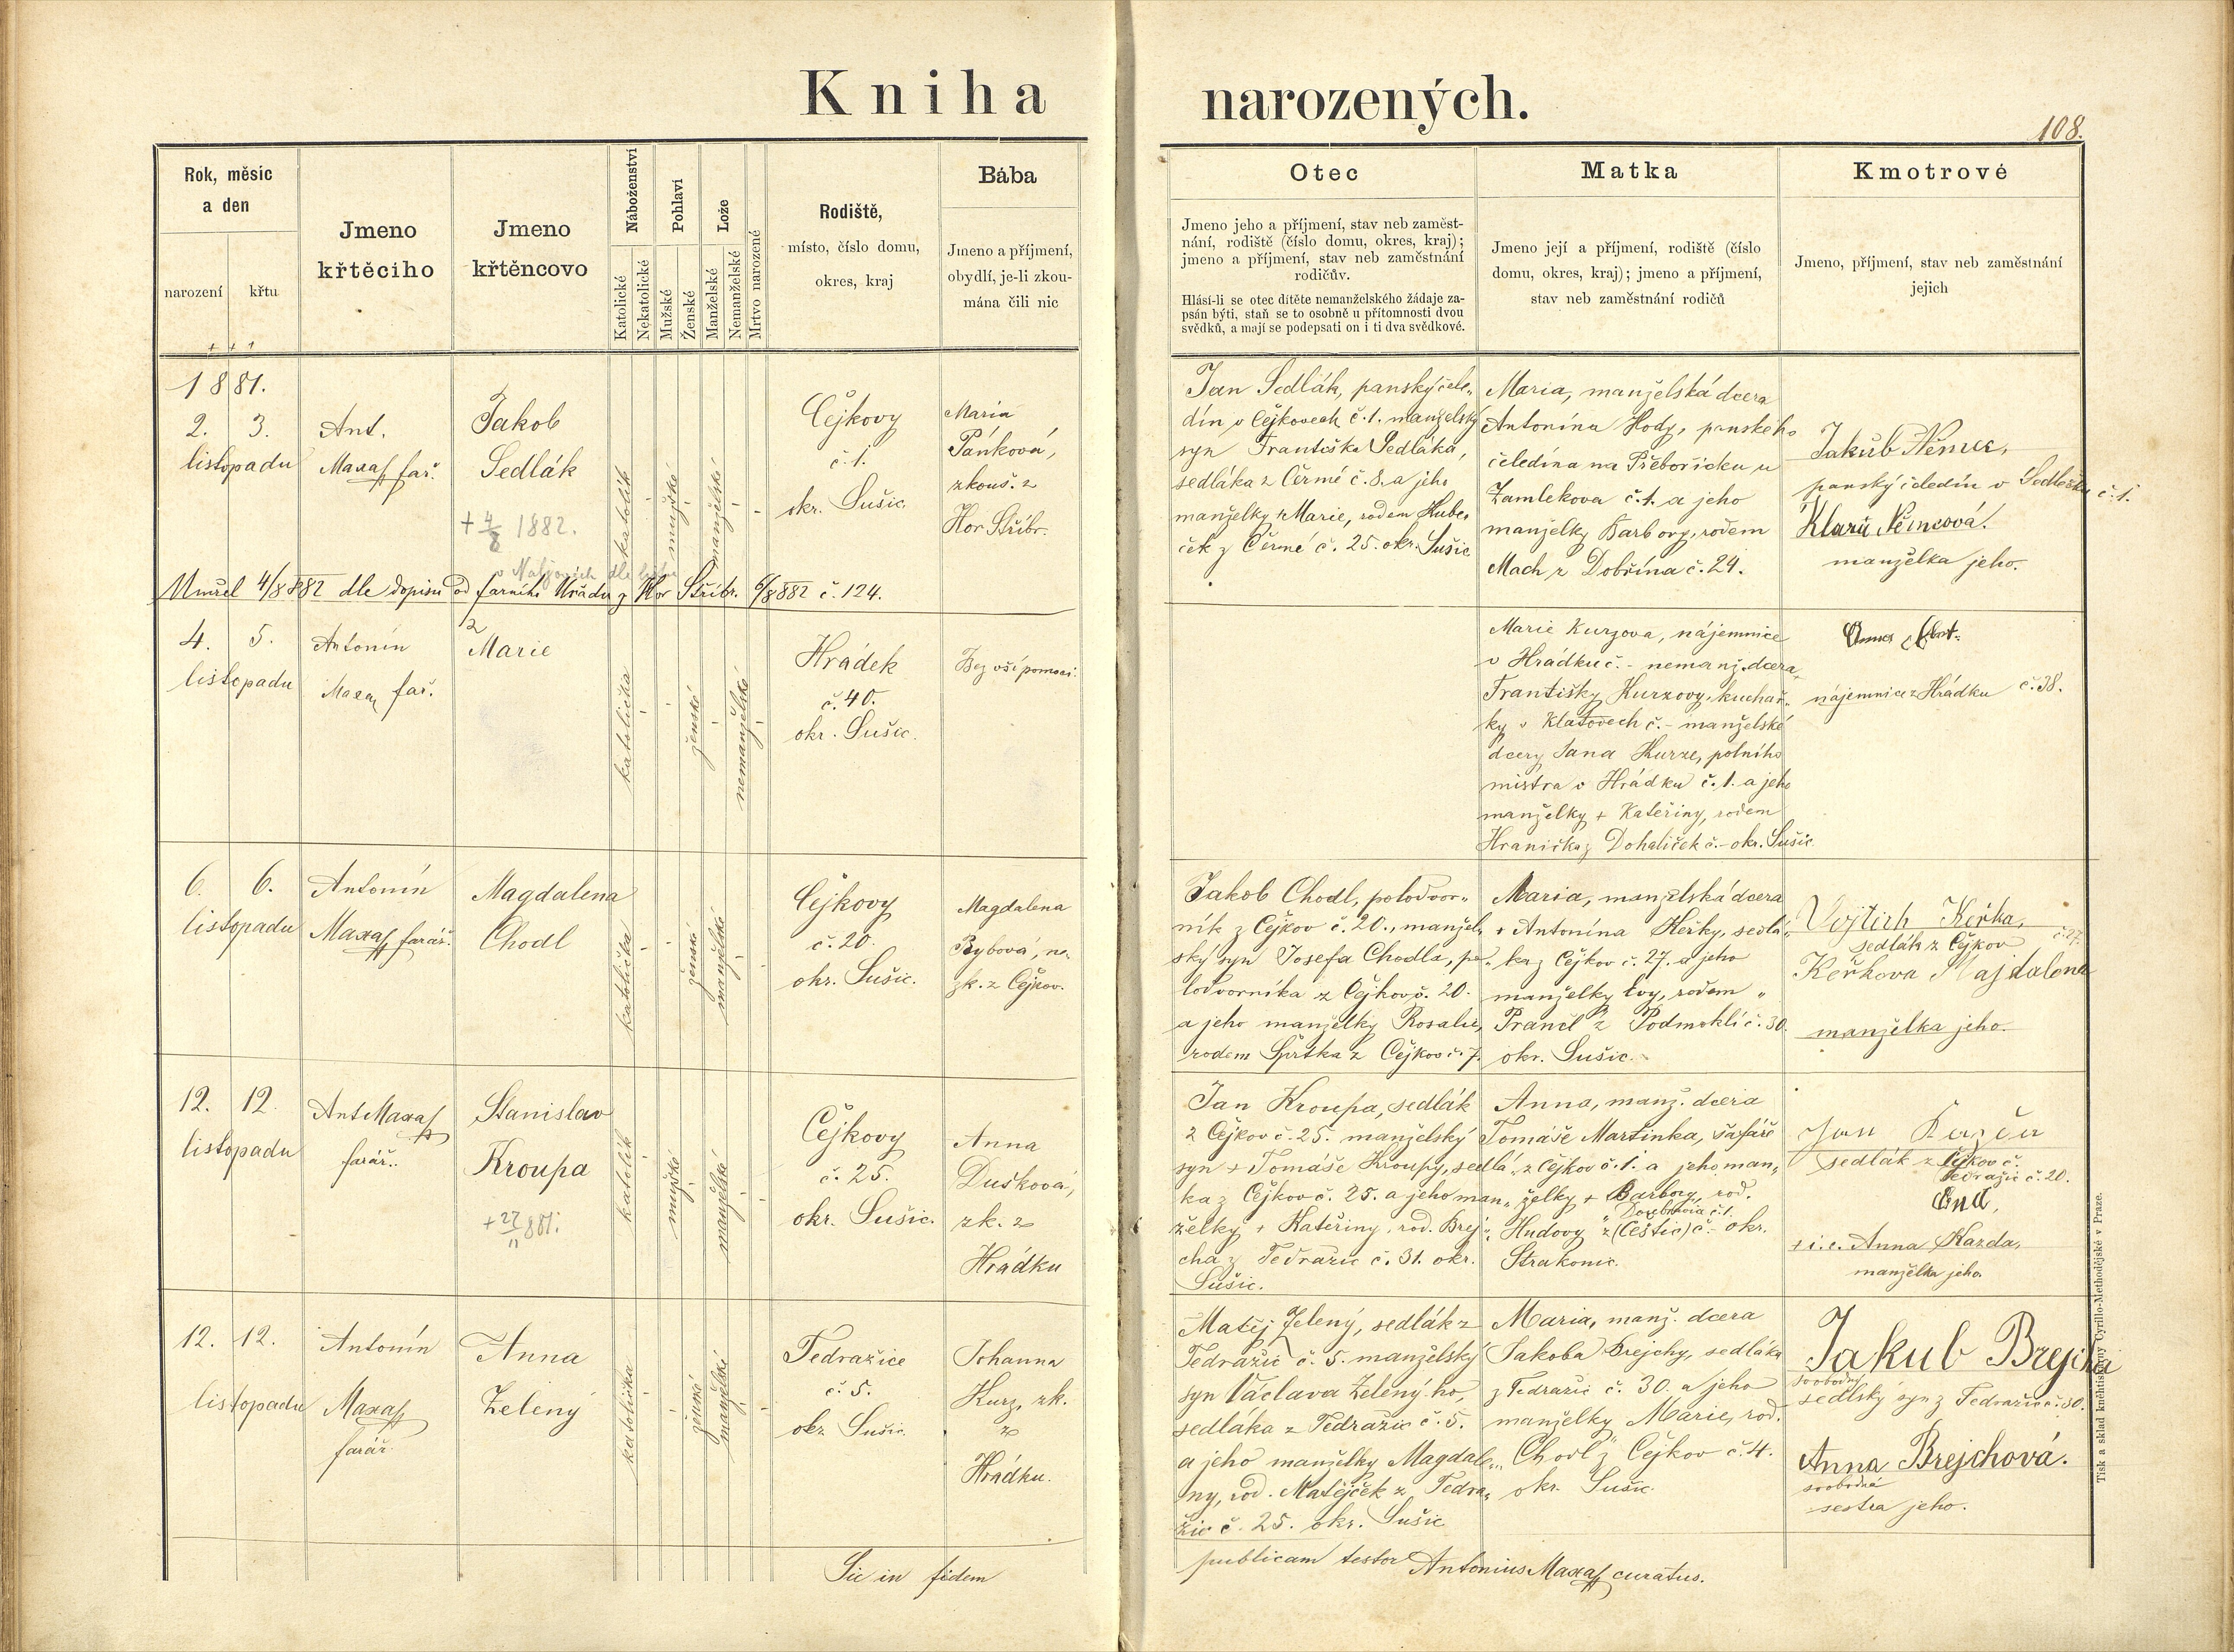 Kniha narozených.
108.
Rok, měsíc
a den
narození
křtu
Jmeno
křtěcího
Jmeno
křtěncovo
Náboženství
Katolické
Nekatolické
Pohlaví
Mužské
Ženské
Lože
Manželské
Nemanželské
Mrtvo narozené
Rodiště,
místo, číslo domu,
okres, kraj
Bába
Jmeno a příjmení,
obydlí, je-li zkou-
mána čili nic
Otec
Jmeno jeho a příjmení, stav neb zaměst-
nání, rodiště (číslo domu, okres, kraj);
jmeno a příjmení, stav neb zaměstnání
rodičův.
Hlásí-li se otec dítěte nemanželského žádaje za-
psán býti, staň se to osobně u přítomnosti dvou
svědků, a mají se podepsati on i ti dva svědkové.
Matka
Jmeno její a příjmení, rodiště (číslo
domu, okres, kraj); jmeno a příjmení,
stav neb zaměstnání rodičů
Kmotrové
Jmeno, příjmení, stav neb zaměstnání
jejich
1881.
2. 3.
listopadu
Ant.
Maxa far.
Jakob
Sedlák
+ 4/8 1882.
katolík
mužské
manželské
Čejkovy
č. 1.
okr. Sušic.
Maria
Pánková,
zkouš. z
Hor. Stříbr.
Jan Sedlák, panský čele-
dín v Čejkovech č. 1. manželský
syn Františka Sedláka,
sedláka z Čermé č. 8. a jeho
manželky Marie, rodem Hube-
ček z Čermé č. 25. okr. Sušic
Maria, manželská dcera
Antonína Hody, panského
čeledína na Přebořicku u
Zamlekova č. 1. a jeho
manželky Barbory, rodem
Mach z Dobřína č. 24.
Jakub Němec,
panský čeledín v Sedlečku č. 1.
Klara Němcová.
manželka jeho.
Umřel 4/8 882 dle dopisu od farního Úřadu z Hor Stříbr. 6/8 882 č. 124.
4. 5.
listopadu
Antonín
Maxa far.
Marie
katolička
ženské
nemanželské
Hrádek
č. 40.
okr. Sušic.
Bez vší pomoci.
Marie Kurzova, nájemnice
v Hrádku č. - nemanž. dcera
Františky Kurzovy, kuchař-
ky v Klatovech č. - manželské
dcery Jana Kurze, polního
mistra v Hrádku č. 1. a jeho
manželky + Kateřiny, rodem
Hranička z Dohaliček č. - okr. Sušic.
Anna
nájemnice z Hrádku č. 38.
6. 6.
listopadu
Antonín
Maxa farář.
Magdalena
Chodl
katolička
ženské
manželské
Čejkovy
č. 20.
okr. Sušic.
Magdalena
Rybová, ne-
zk. z Čejkov.
Jakob Chodl, polodvor-
ník z Čejkov č. 20., manžel-
ský syn Josefa Chodla, po-
lodvorníka z Čejkov č. 20.
a jeho manželky Rosalie,
rodem Šprtka z Čejkov č. 7.
Maria, manželská dcera
+ Antonína Heřky, sedlá-
ka z Čejkov č. 27. a jeho
manželky Evy, rodem
Prančl z Podmoklí č. 30.
okr. Sušic.
Vojtěch Keřka,
sedlák z Čejkov č. 27.
Keřkova Majdalena
manželka jeho.
12. 12.
listopadu
Ant Maxa
farář.
Stanislav
Kroupa
+ 27/11 881.
katolík
mužské
manželské
Čejkovy
č. 25.
okr. Sušic.
Anna
Dušková,
zk. z
Hrádku
Jan Kroupa, sedlák
z Čejkov č. 25. manželský
syn + Tomáše Kroupy, sedlá-
ka z Čejkov č. 25. a jeho man-
želky + Kateřiny, rod. Brej-
cha z Tedražic č. 31. okr.
Sušic.
Anna, manž. dcera
Tomáše Martinka, šafáře
z Čejkov č. 1. a jeho man-
želky + Barbory, rod.
Hudovy z (Čestic) č. - okr.
Strakonic.
Jan Kazda
sedlák z Čejkov č.
Tedražic č. 20.
+ i. e. Anna Kazda,
manželka jeho.
12. 12.
listopadu
Antonín
Maxa
farář.
Anna
Zelený
katolička
ženské
manželské
Tedražice
č. 5.
okr. Sušic.
Johanna
Kurz, zk.
z
Hrádku.
Matěj Zelený, sedlák z
Tedražic č. 5. manželský
syn Václava Zeleného,
sedláka z Tedražic č. 5.
a jeho manželky Magdale-
ny, rod. Matějček z Tedra-
žic č. 25. okr. Sušic
Maria, manž. dcera
Jakoba Brejchy, sedláka
z Tedražic č. 30. a jeho
manželky Marie, rod.
Chodl z Čejkov č. 4.
okr. Sušic.
Jakub Brejcha
svobodný
sedlský syn z Tedražic č. 30.
Anna Brejchová.
svobodná
sestra jeho.
Sic in fidem publicam testor Antonius Maxa curatus.